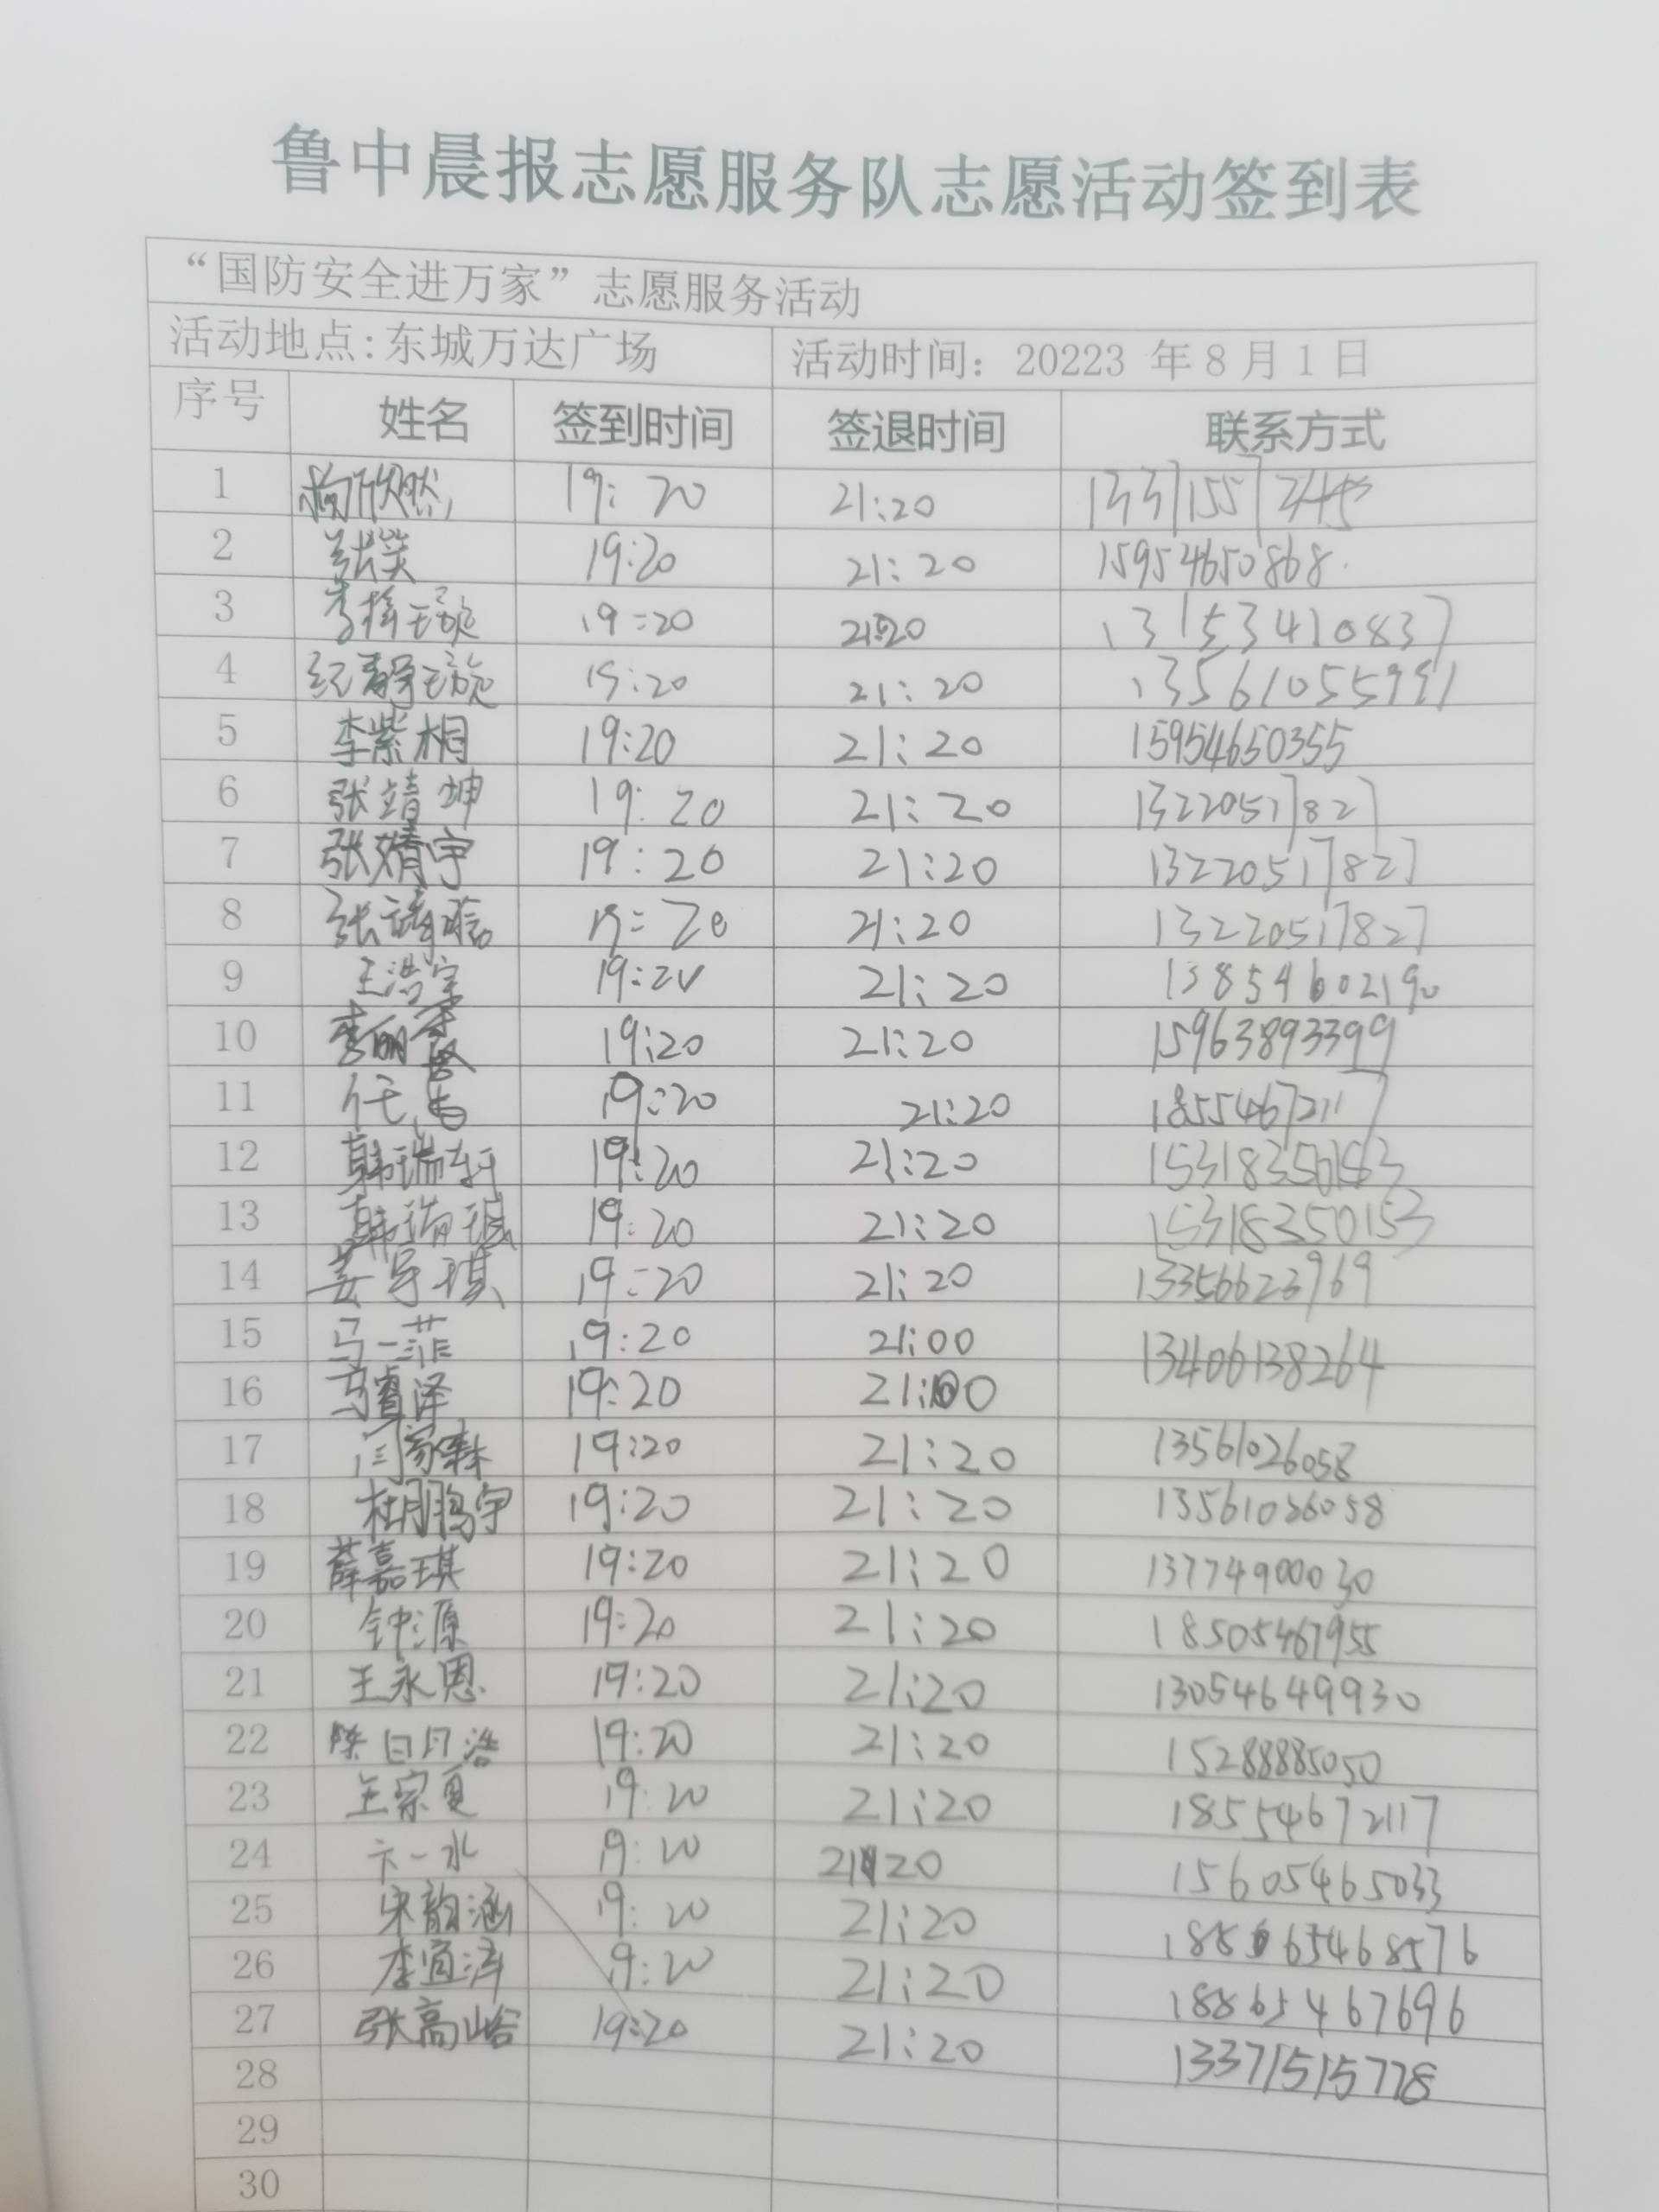 鲁中晨报志愿服务队志愿活动签到表
“国防安全进万家”志愿服务活动
活动地点:东城万达广场 活动时间: 20223 年8月1日
序号 姓名 签到时间 签退时间 联系方式
1 19:20 21:20
2 张笑 19:20 21:20 15954650868
3 19:20 21:20 13153410837
4 纪静璇 19:20 21:20 13561055991
5 李紫桐 19:20 21:20 15954650355
6 张靖坤 19:20 21:20 13220517827
7 张婧宇 19:20 21:20 13220517827
8 19:20 21:20 13220517827
9 王浩宇 19:20 21:20 13854602190
10 19:20 21:20 15963893399
11 19:20 21:20 18554672117
12 韩瑞轩 19:20 21:20 15318350153
13 19:20 21:20 15318350153
14 姜宇琪 19:20 21:20 13356623969
15 马一菲 19:20 21:00 13406138264
16 马睿泽 19:20 21:00
17 闫家森 19:20 21:20 13561026058
18 杜鹏宇 19:20 21:20 13561026058
19 薛嘉琪 19:20 21:20 13774900030
20 钟源 19:20 21:20 18505467955
21 王永恩 19:20 21:20 13054649930
22 19:20 21:20 15288885050
23 王宗夏 19:20 21:20 18554672117
24 卞一水 19:20 21:20 15605465033
25 宋韵涵 19:20 21:20
26 李宜泽 19:20 21:20 18865467696
27 张高峪 19:20 21:20 13371515778
28
29
30